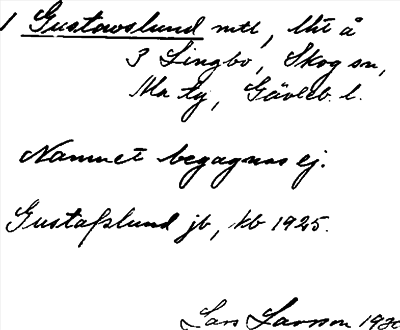 1 Gustavslund mtl, lht å
3 Lingbo, Skog sn,
Ma tg, Gävleb. l.
Namnet begagnas ej.
Gustafslund jb, kb 1925.
Lars Larsson 1930